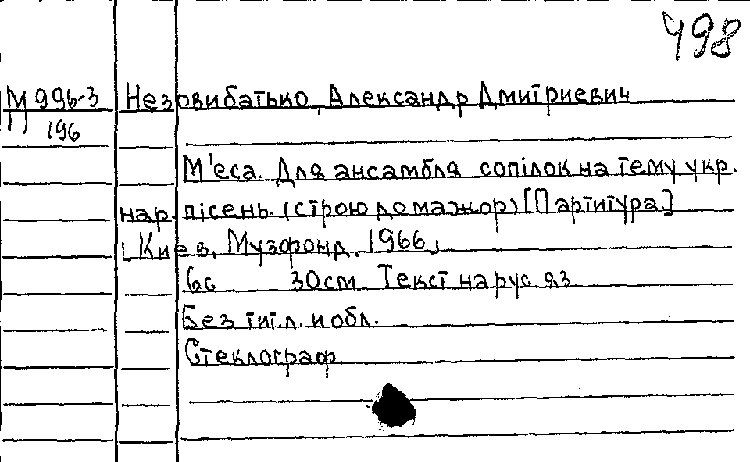 498
М 996-3 Незовибатько, Александр Дмитриевич
196
П'еса. Для ансамбля сопілок на тему укр.
нар. пісень. (строю до мажор) [Партитура]
[Киев, Музфонд, 1966]
6с 30см Текст на рус. яз
Без тит. л. и обл.
Стеклограф